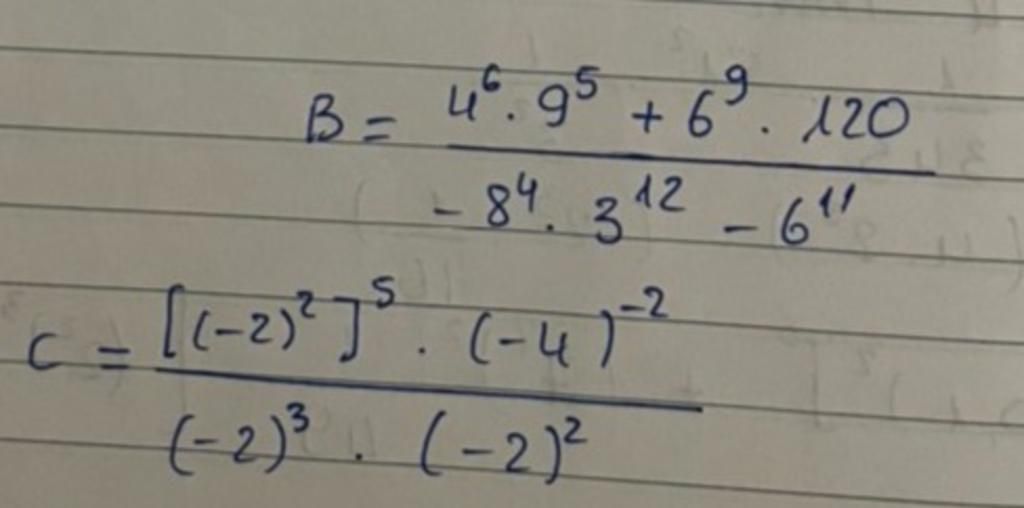 B = \frac{4^6 . 9^5 + 6^9 . 120}{- 8^4 . 3^{12} - 6^{11}}
C = \frac{[(-2)^2]^5 . (-4)^{-2}}{(-2)^3 . (-2)^2}